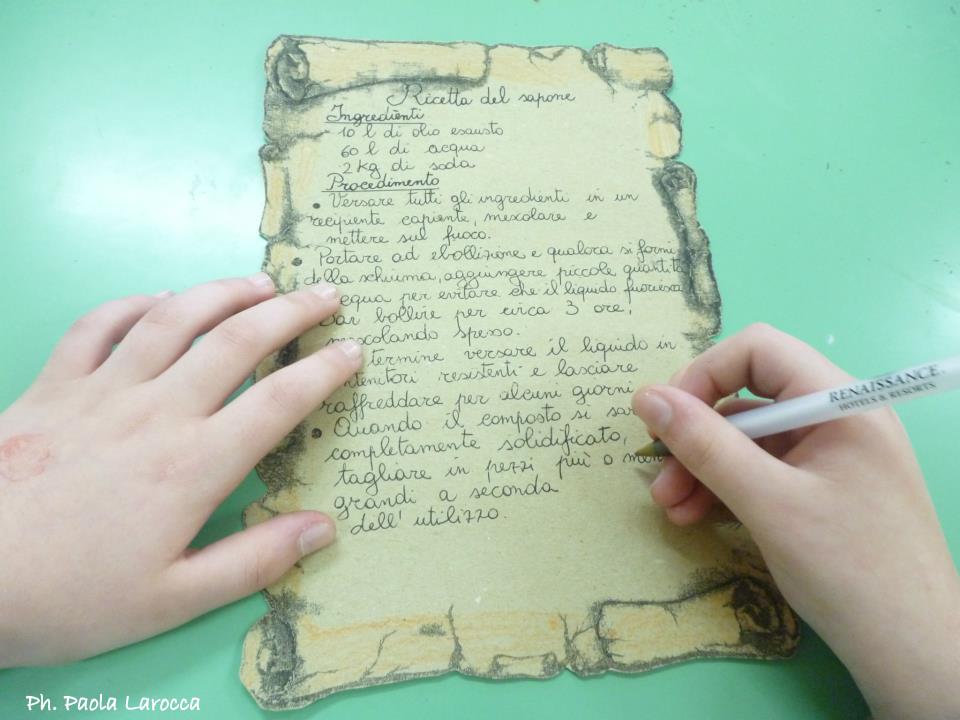 Ricetta del sapone
Ingredienti
- 10 l di olio esausto
60 l di acqua
2 kg di soda
Procedimento
• Versare tutti gli ingredienti in un
recipiente capiente, mexolare e
mettere sul fuoco.
• Portare ad ebollizione e qualora si formi
della schiuma, aggiungere piccole quantità
acqua per evitare che il liquido fuoriesca
Far bollire per circa 3 ore,
mescolando spesso.
termine versare il liquido in
contenitori resistenti e lasciare
raffreddare per alcuni giorni
• Quando il composto si sarà
completamente solidificato,
tagliare in pezzi più o meno
grandi a seconda
dell' utilizzo.
RENAISSANCE
HOTELS & RESORTS
Ph. Paola Larocca